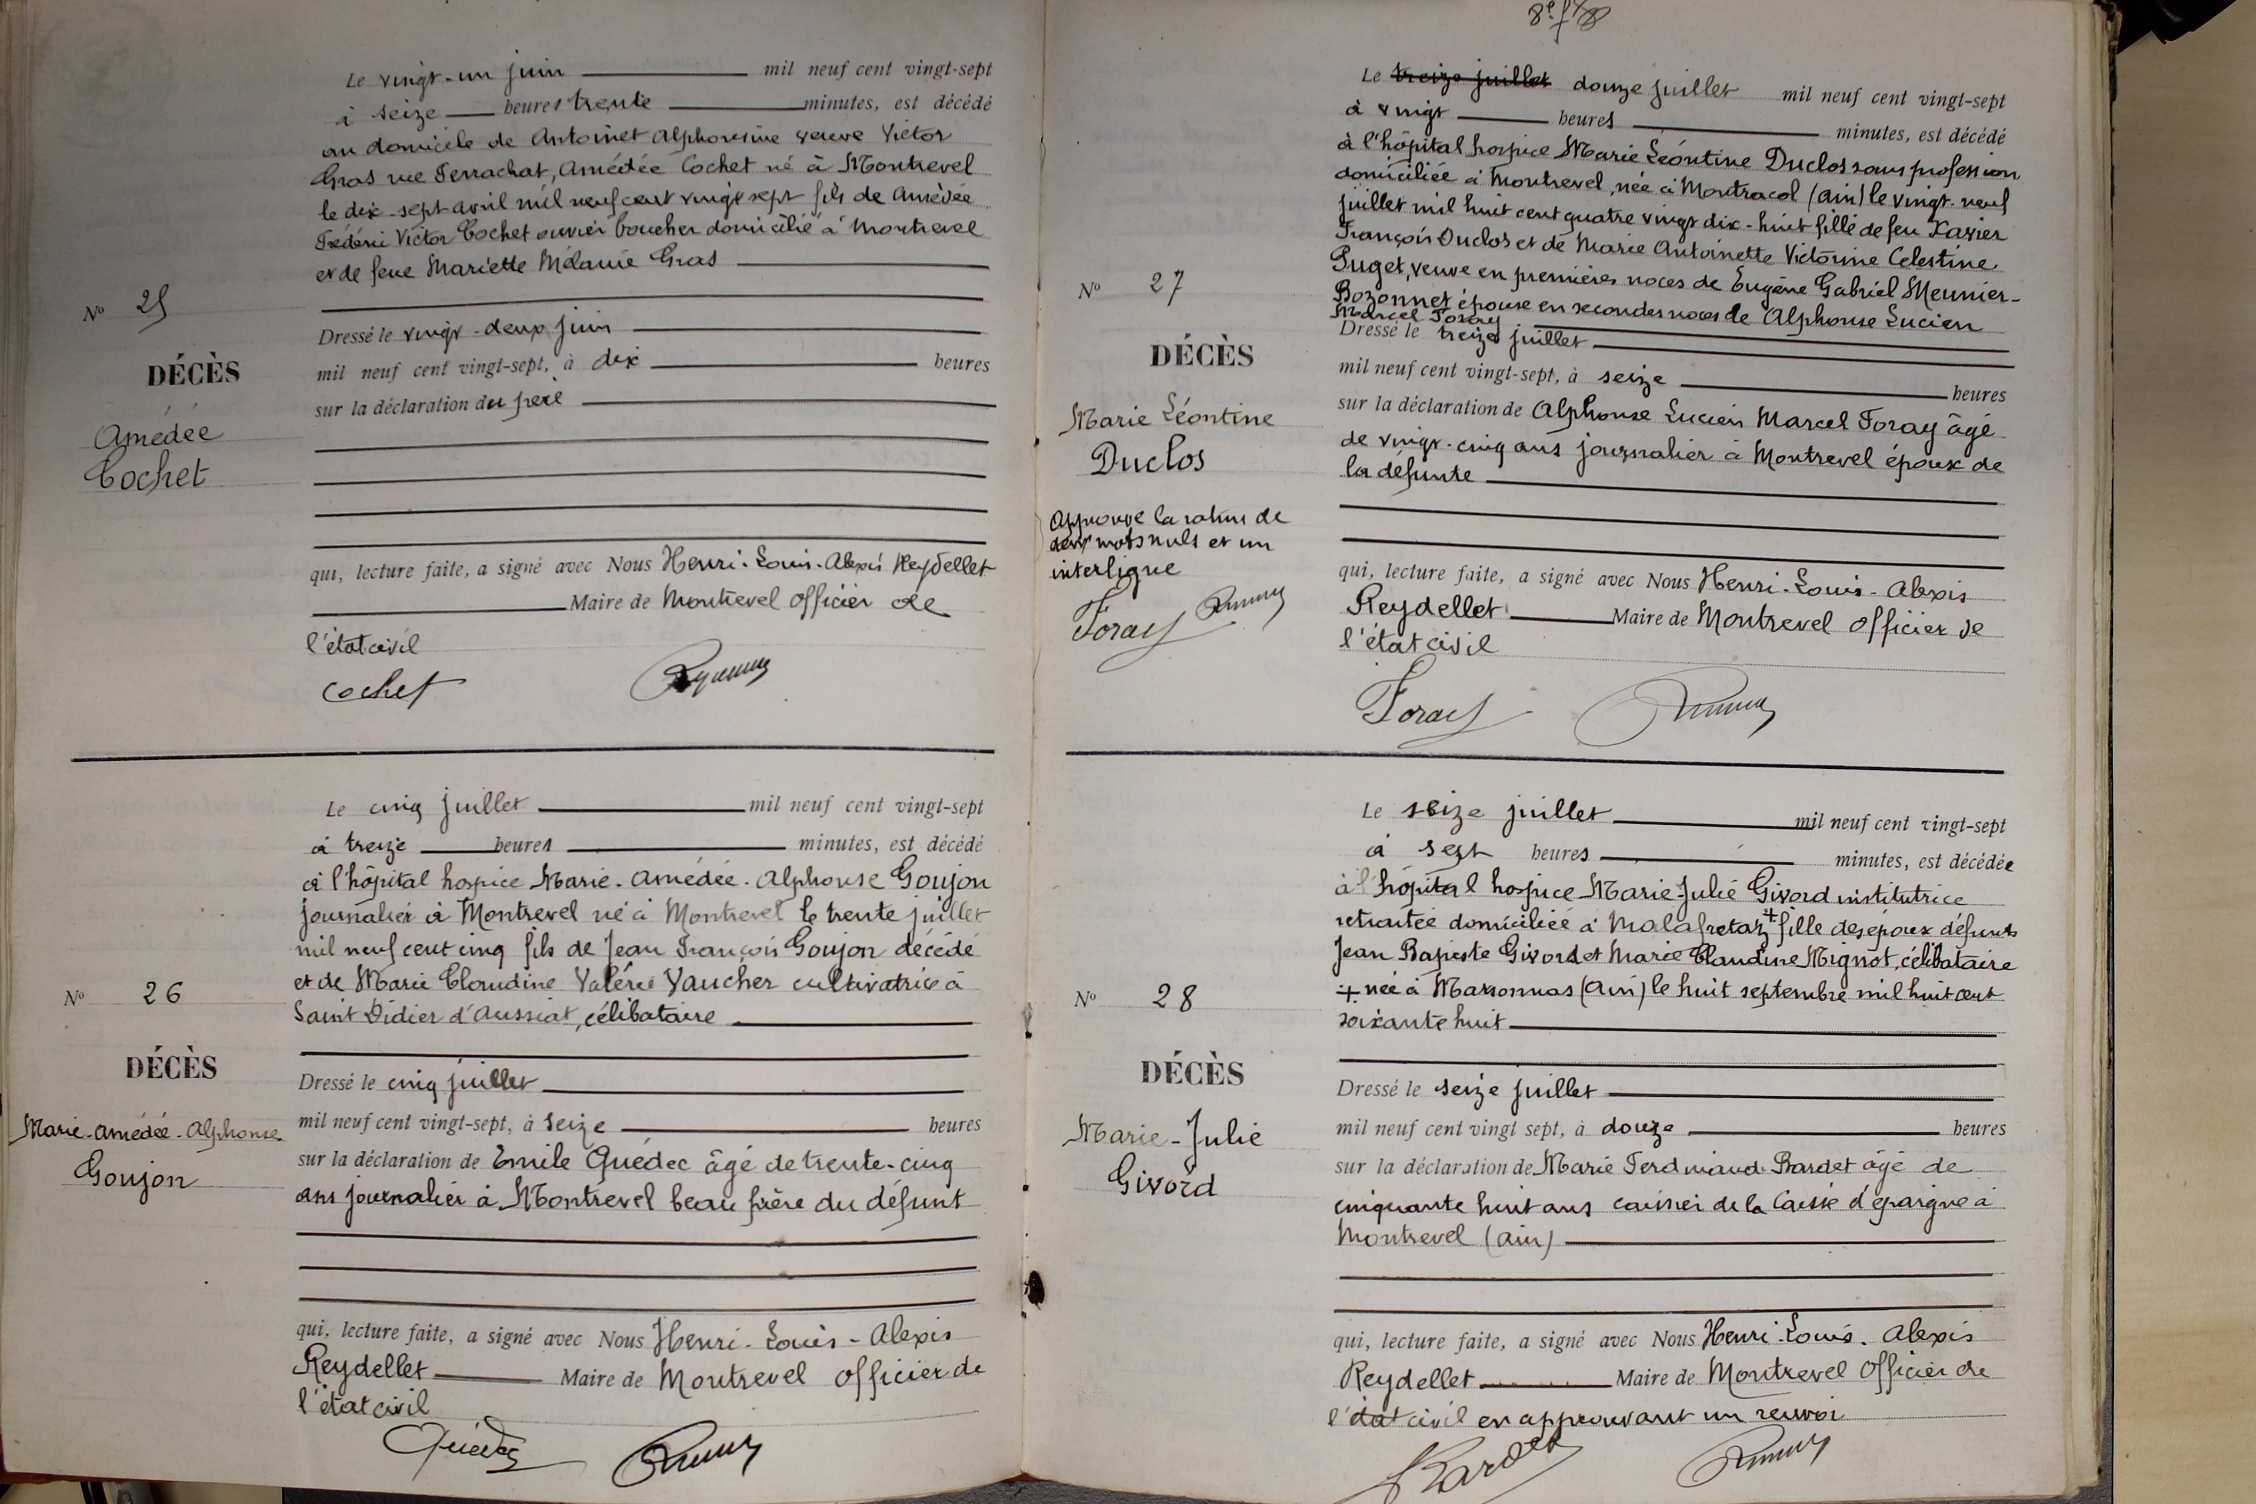 Le vingt-un juin mil neuf cent vingt-sept
à seize heures trente minutes, est décédé
au domicile de Antoinet Alphonsine veuve Victor
Gras rue Ferrachat, Amédée Cochet né à Montrevel
le dix-sept avril mil neuf cent vingt sept fils de Amédée
Frédéric Victor Cochet ouvrier boucher domicilié à Montrevel
et de feue Mariette Mélanie Gras
No 25
Dressé le vingt-deux juin
DÉCÈS
mil neuf cent vingt-sept, à dix heures
sur la déclaration du père
Amédée
Cochet
qui, lecture faite, a signé avec Nous Henri-Louis-Alexis Reydellet
Maire de Montrevel officier de
l'état civil
Cochet
Le cinq juillet mil neuf cent vingt-sept
à treize heures minutes, est décédé
à l'hôpital hospice Marie-Amédée-Alphonse Goujon
journalier à Montrevel né à Montrevel le trente juillet
mil neuf cent cinq fils de Jean François Goujon décédé
et de Marie Claudine Valérie Vaucher cultivatrice à
Saint Didier d'Aussiat, célibataire
No 26
DÉCÈS
Dressé le cinq juillet
mil neuf cent vingt-sept, à seize heures
Marie-Amédée-Alphonse
Goujon
sur la déclaration de Emile Quédec âgé de trente-cinq
ans journalier à Montrevel beau frère du défunt
qui, lecture faite, a signé avec Nous Henri-Louis-Alexis
Reydellet Maire de Montrevel officier de
l'état civil
Quédec
8e f
Le treize juillet douze juillet mil neuf cent vingt-sept
à vingt heures minutes, est décédé
à l'hôpital hospice Marie Léontine Duclos sans profession
domiciliée à Montrevel, née à Montracol (Ain) le vingt-neuf
juillet mil huit cent quatre vingt dix-huit fille de feu Xavier
François Duclos et de Marie Antoinette Victorine Celestine
Puget, veuve en premières noces de Eugène Gabriel Meunier-
Bozonnet épouse en secondes noces de Alphonse Lucien
Marcel Foray
No 27
Dressé le treize juillet
DÉCÈS
mil neuf cent vingt-sept, à seize heures
sur la déclaration de Alphonse Lucien Marcel Foray âgé
de vingt-cinq ans journalier à Montrevel époux de
la défunte
Marie Léontine
Duclos
Approuvé la rature de
deux mots nuls et un
interligne
Foray
qui, lecture faite, a signé avec Nous Henri-Louis-Alexis
Reydellet Maire de Montrevel officier de
l'état civil
Foray
Le seize juillet mil neuf cent vingt-sept
à sept heures minutes, est décédée
à l'hôpital hospice Marie-Julie Givord institutrice
retraitée domiciliée à Malafretaz + fille des époux défunts
Jean Bapiste Givord et Marie Claudine Mignot, célibataire
+ née à Marsonnas (Ain) le huit septembre mil huit cent
soixante huit
No 28
DÉCÈS
Marie-Julie
Givord
Dressé le seize juillet
mil neuf cent vingt sept, à douze heures
sur la déclaration de Marie Ferdinand Bardet âgé de
cinquante huit ans caissier de la Caisse d'épargne à
Montrevel (Ain)
qui, lecture faite, a signé avec Nous Henri-Louis-Alexis
Reydellet Maire de Montrevel officier de
l'état civil en approuvant un renvoi
Bardet